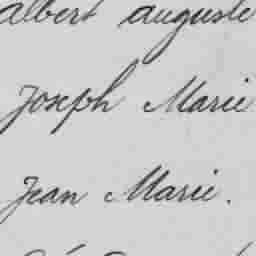 albert auguste
Joseph Marie
Jean Marie.